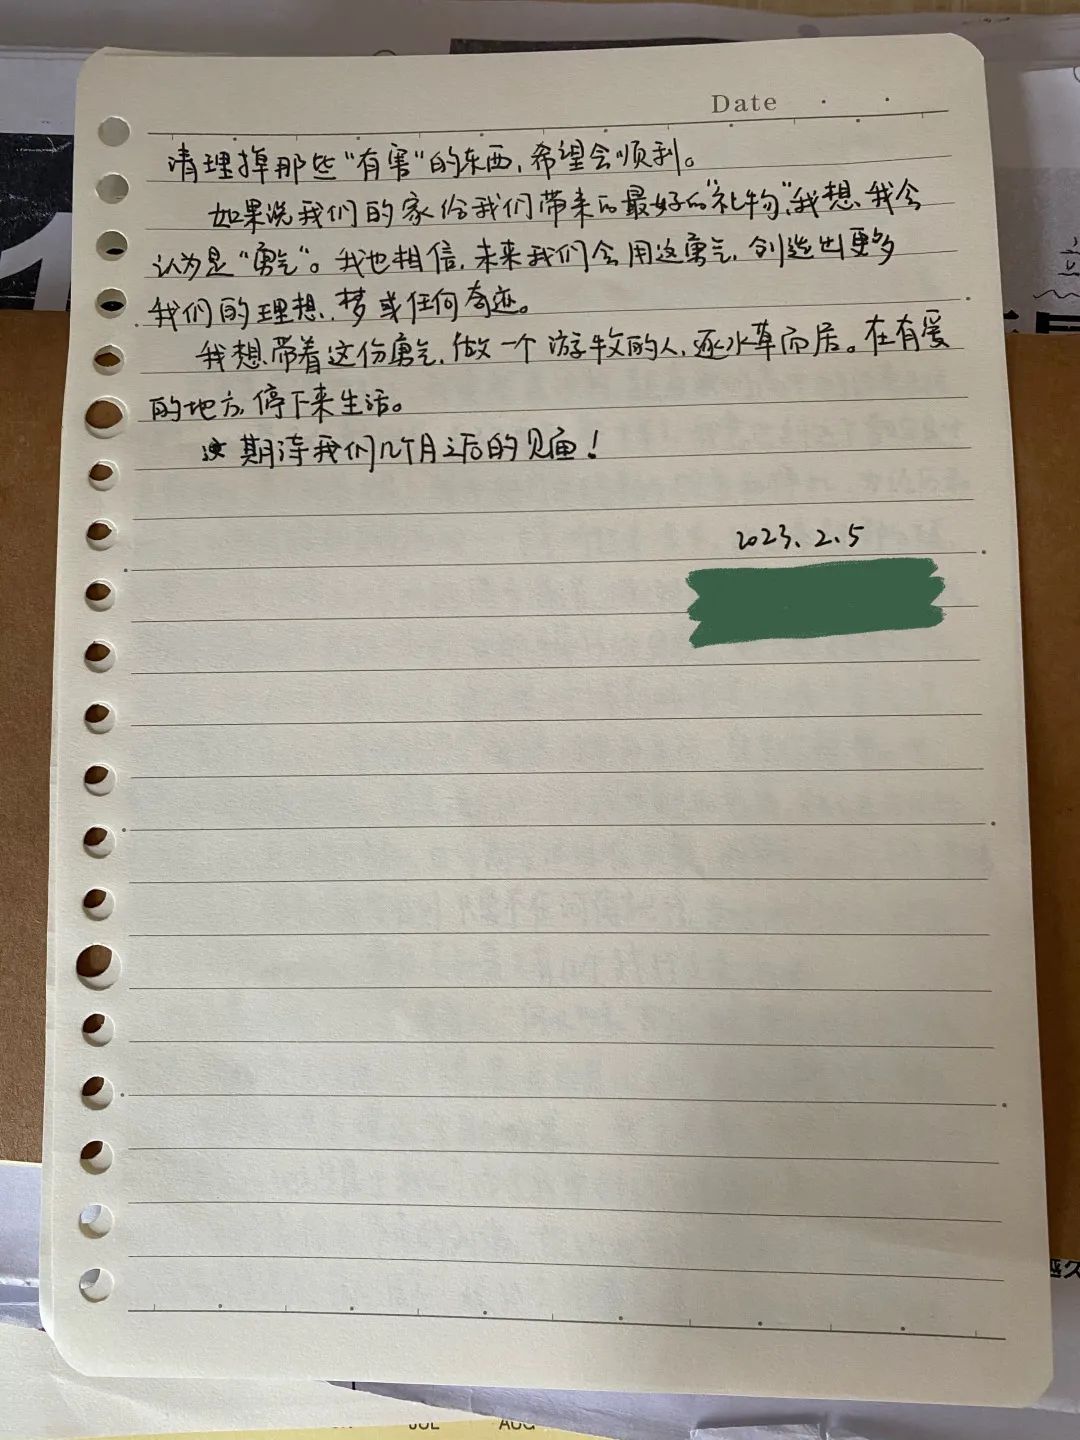 Date
清理掉那些“有害”的东西,希望会顺利。
如果说我们的家给我们带来的最好的“礼物”,我想,我会
认为是“勇气”。我也相信,未来我们会用这勇气,创造出更多
我们的理想、梦或任何奇迹。
我想带着这份勇气,做一个游牧的人,逐水草而居。在有爱
的地方,停下来生活。
期待我们几个月之后的见面!
2023.2.5
JUL AUG